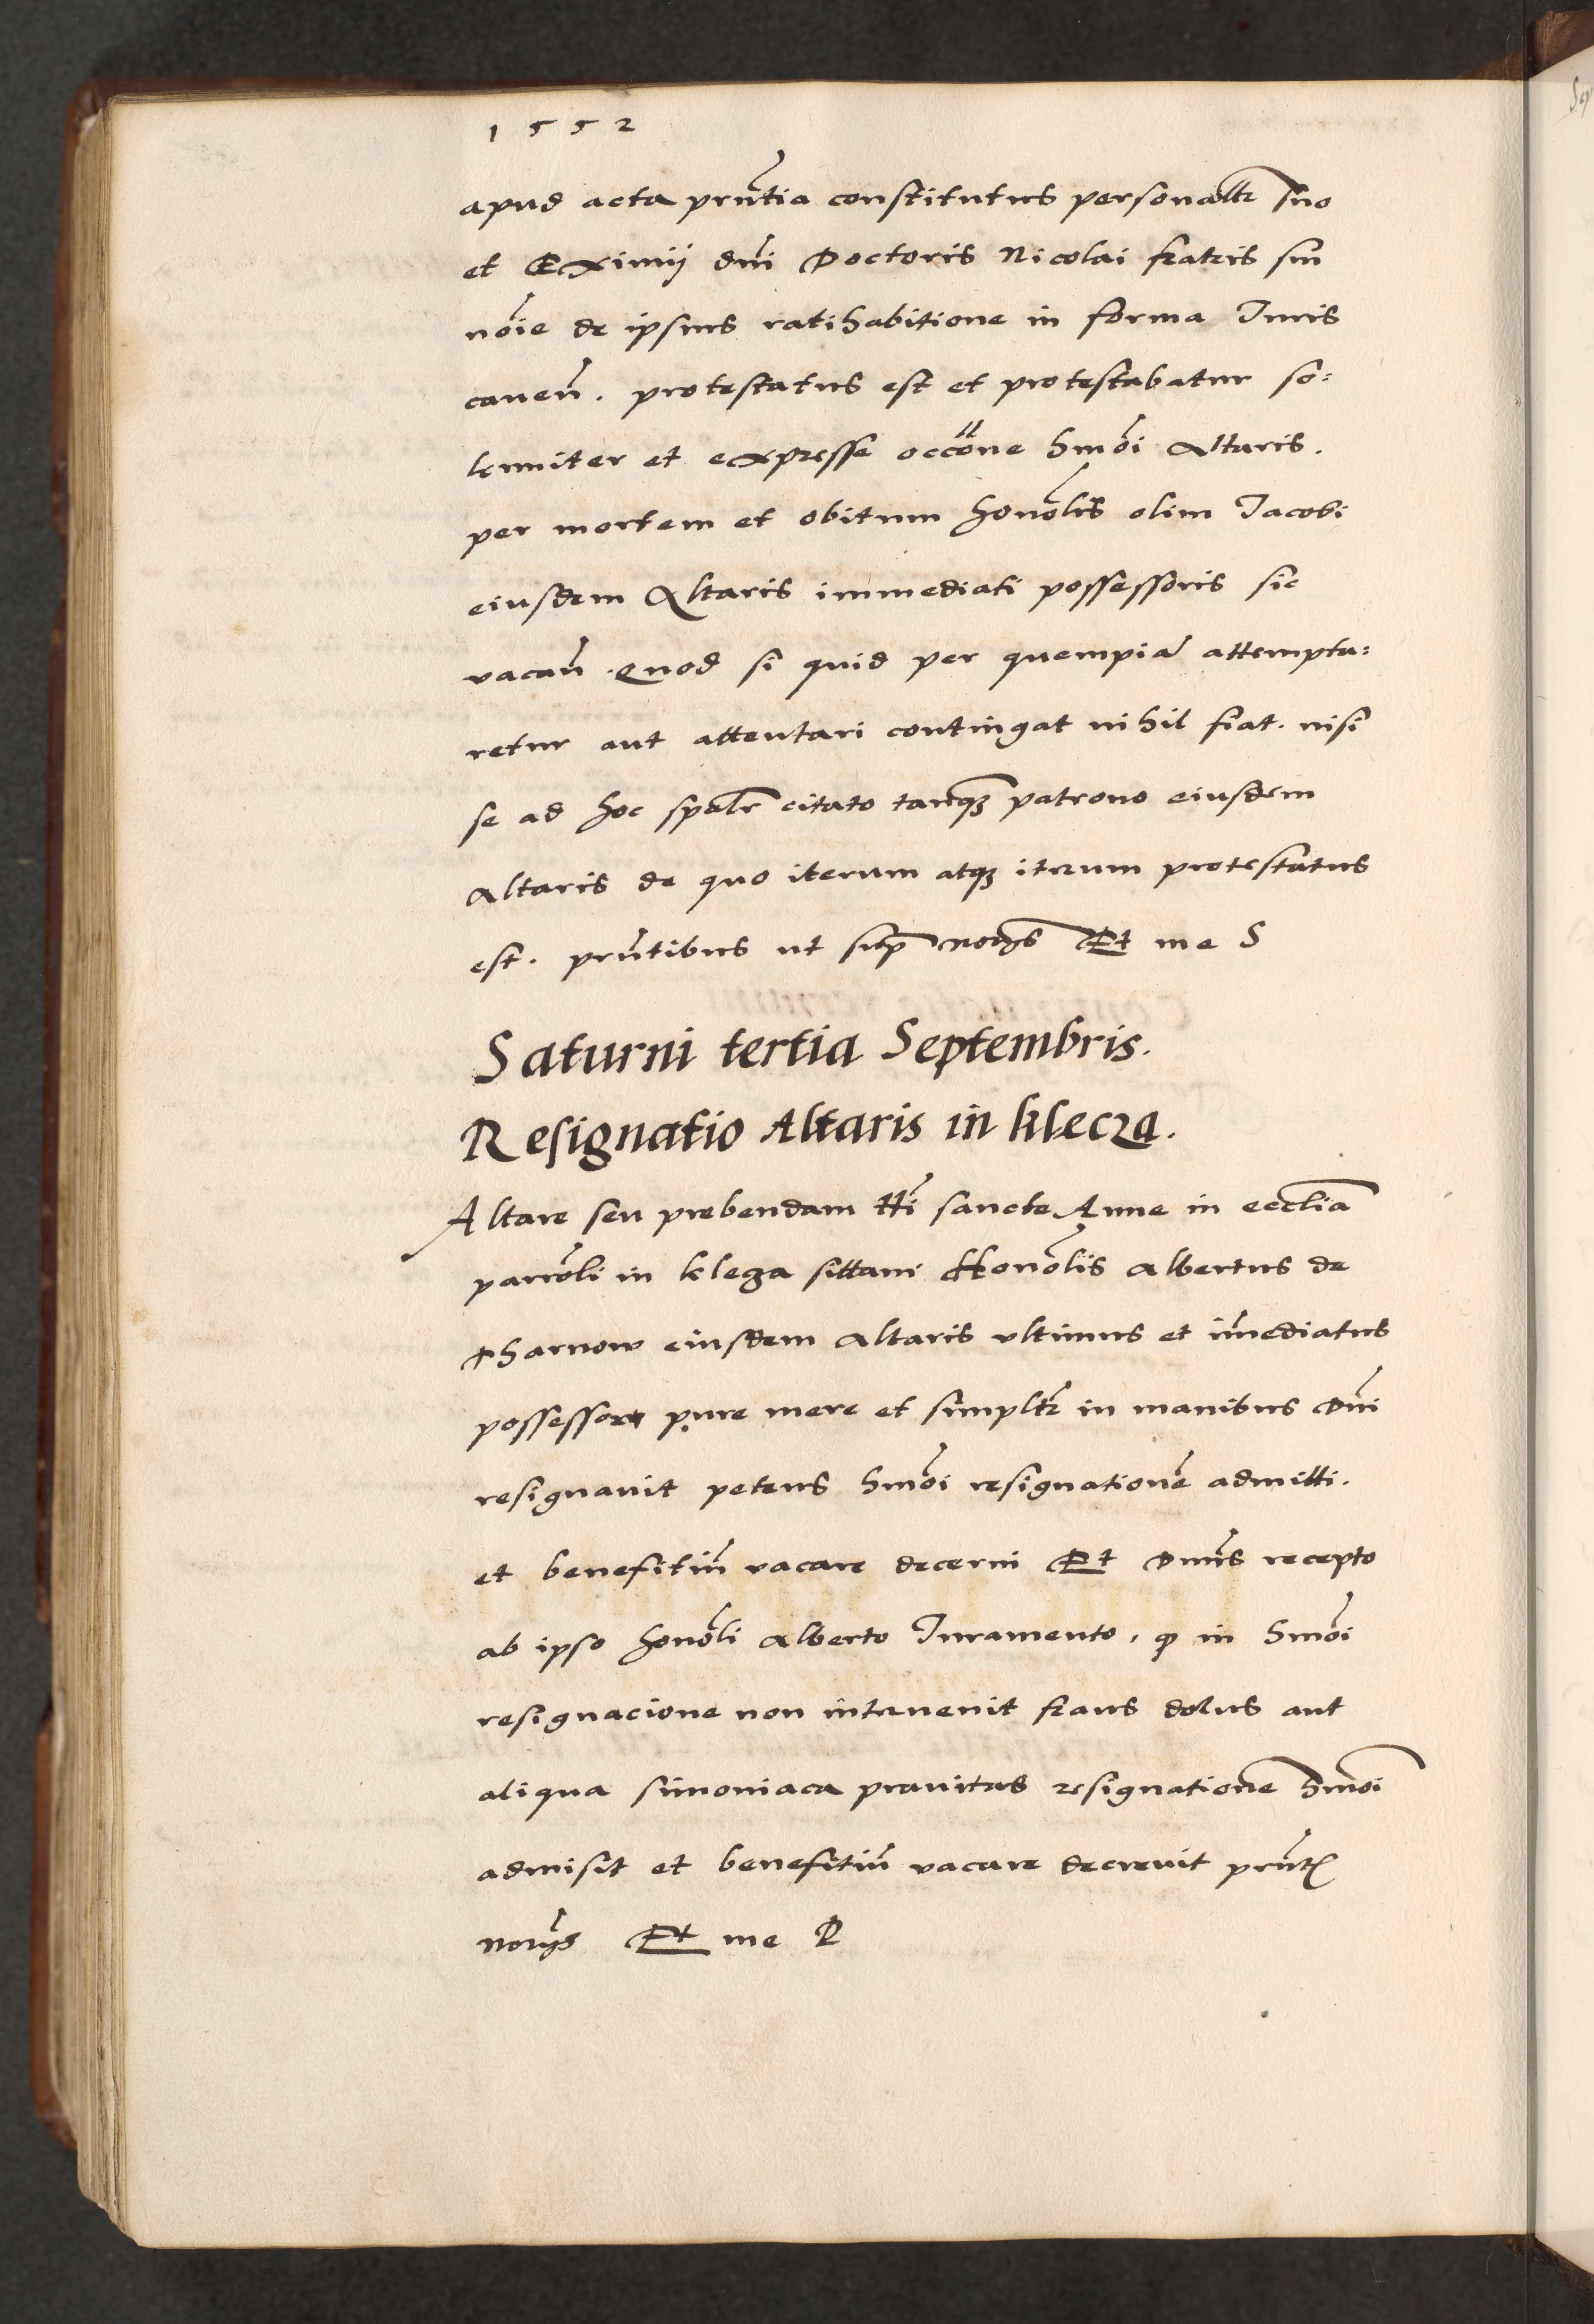 1552
apud acta prn̄tia constitutus personalr̄ suo
et Eximij dn̄i Doctoris Nicolai fratris sui
nōie de ipsius ratihabitione in forma Iuris
cauen̄. protestatus est et protestabatur so:
lenniter et expresse occōne hmōi Altaris.
per mortem et obitum honōlis olim Iacobi
eiusdem Altaris immediati possessoris sic
vacan̄. Quod si quid per quempiā attempta:
retur aut attentari contingat nihil fiat. nisi
se ad hoc spālr citato tanqꝫ patrono eiusdem
Altaris de quo iterum atqꝫ iterum protestatus
est. prn̄tibus ut sup̄ norijs Et me S
Saturni tertia Septembris.
Resignatio Altaris in klecza.
Altare seu prebendam tt̄i sancte Anne in eccl̄ia
parrōli in klega sittam Honōlis Albertus de
Tharnow eiusdem Altaris vltimus et im̄ediatus
possessor pure mere et simplr̄ in manibus Dn̄i
resignauit petens hmōi resignationē admitti.
et benefitiū vacare decerni Et Dn̄us recepto
ab ipso honōli Alberto Iuramento, ꝙ in hmōi
resignacione non interuenit fraus dolus aut
aliqua simoniaca prauitas resignationē hmōi
admisit et benefitiū vacare decreuit prn̄t
norijs Et me P